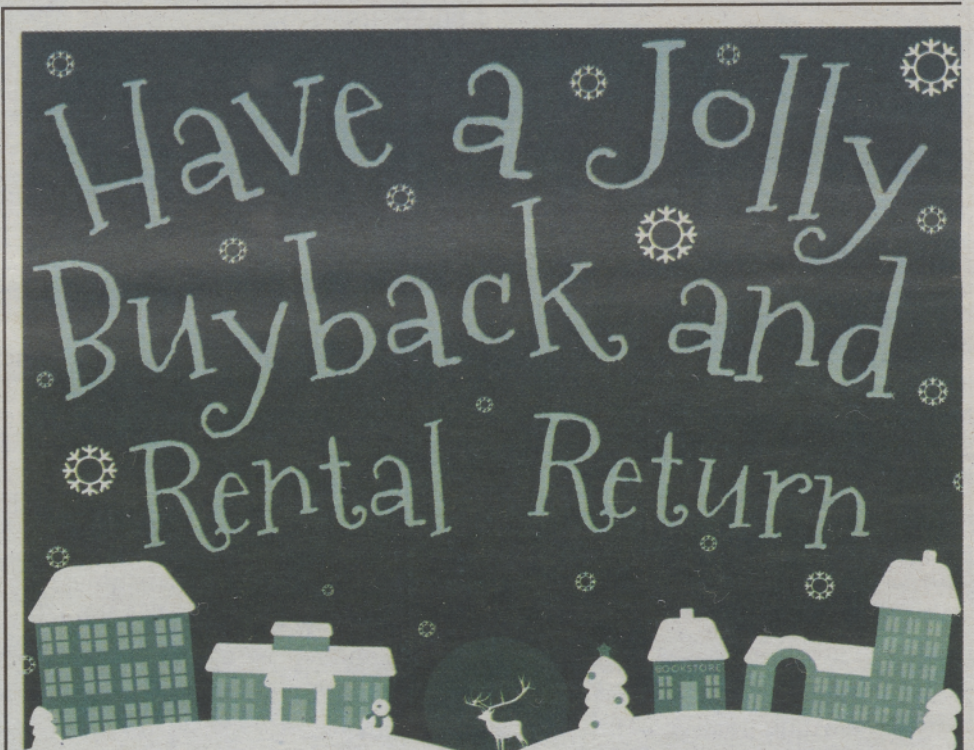 Have a Jolly
Buyback and
Rental Return
BOOKSTORE